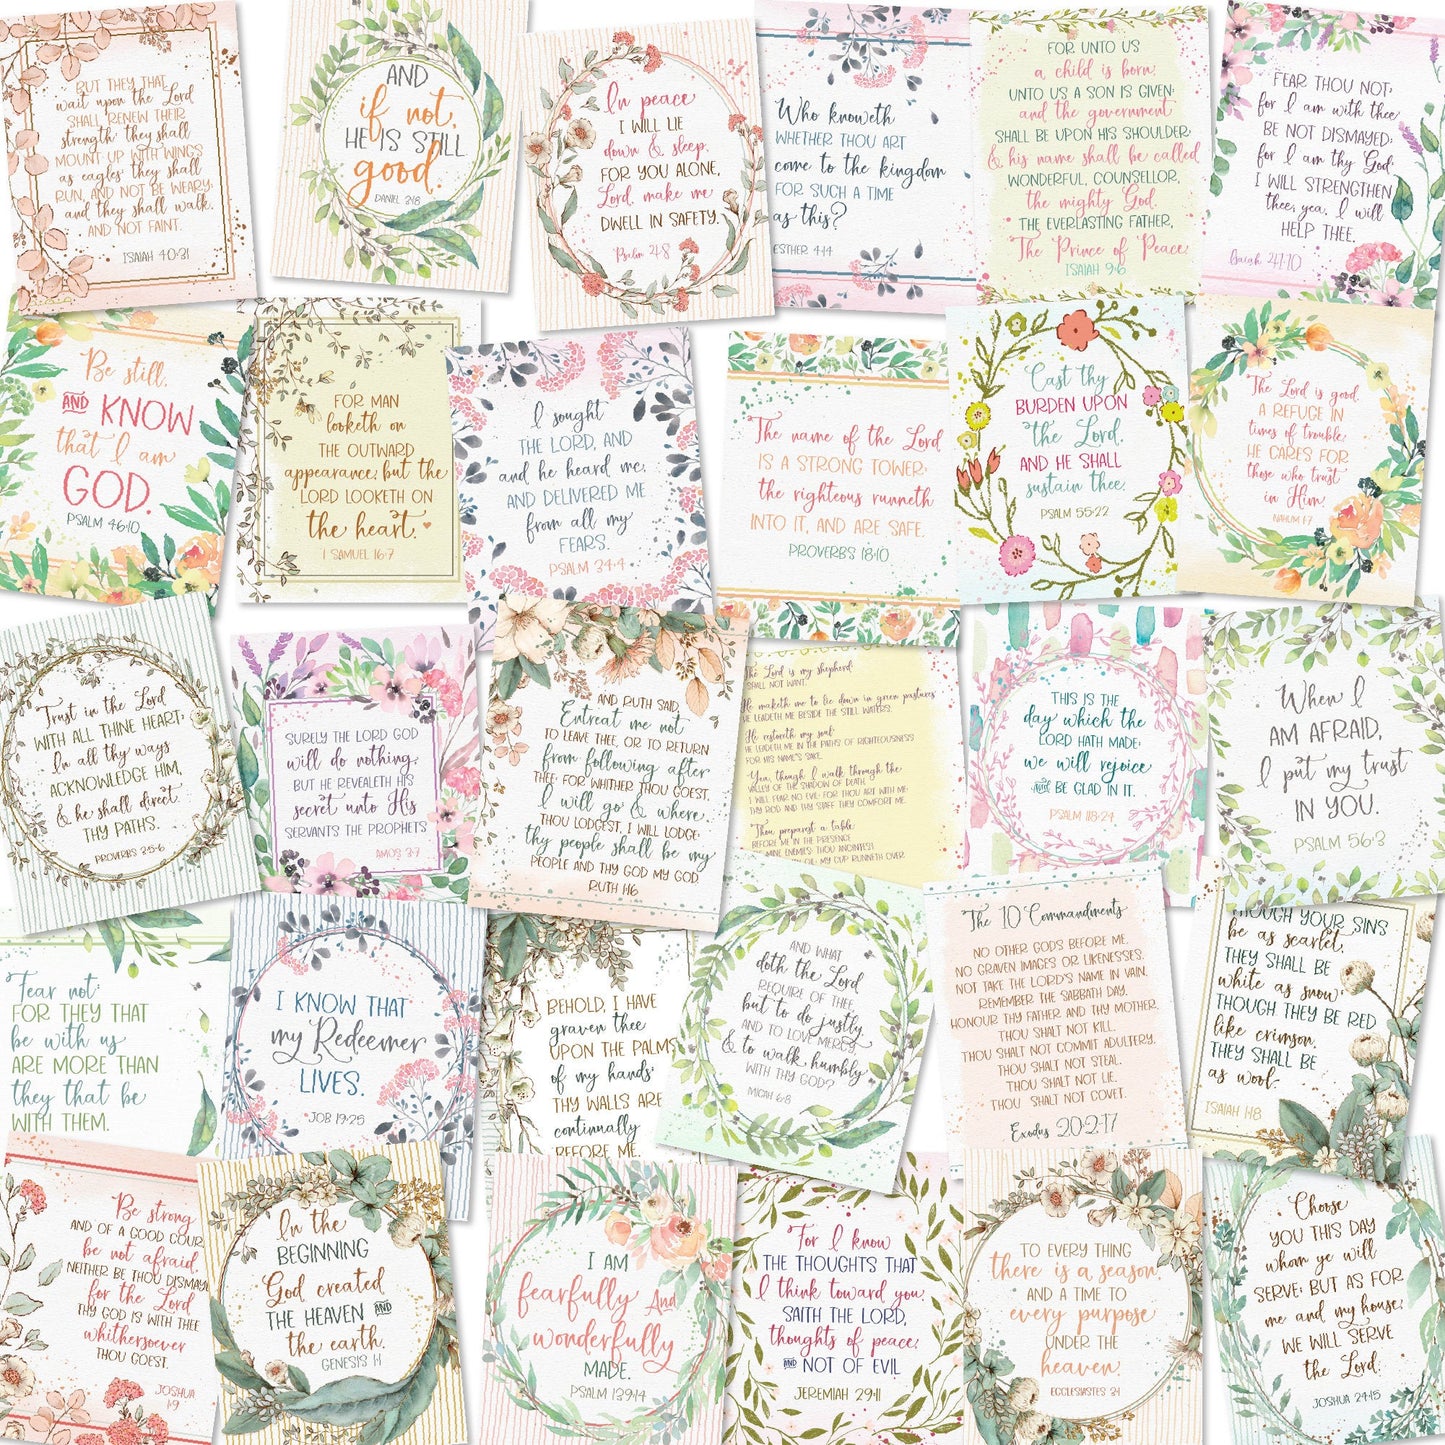 BUT THEY THAT
wait upon the Lord
SHALL RENEW THEIR
strength; they shall
MOUNT UP WITH WINGS
as eagles; they shall
RUN, AND NOT BE WEARY;
and they shall walk,
AND NOT FAINT.
ISAIAH 40:31
AND
if not,
HE IS STILL
good.
DANIEL 3:18
In peace
I WILL LIE
down & sleep,
FOR YOU ALONE,
Lord, make me
DWELL IN SAFETY.
Psalm 4:8
Who knoweth
WHETHER THOU ART
come to the kingdom
FOR SUCH A TIME
as this?
ESTHER 4:14
FOR UNTO US
a child is born,
UNTO US A SON IS GIVEN;
and the government
SHALL BE UPON HIS SHOULDER;
& his name shall be called
WONDERFUL, COUNSELLOR,
the mighty God,
THE EVERLASTING FATHER,
The Prince of Peace
ISAIAH 9:6
FEAR THOU NOT;
for I am with thee
BE NOT DISMAYED;
for I am thy God:
I WILL STRENGTHEN
thee; yea, I will
HELP THEE.
Isaiah 41:10
Be still,
AND KNOW
that I am
GOD.
PSALM 46:10
FOR MAN
looketh on
THE OUTWARD
appearance, but the
LORD LOOKETH ON
the heart.
1 SAMUEL 16:7
I sought
THE LORD, AND
and he heard me,
AND DELIVERED ME
from all my
FEARS.
PSALM 34:4
The name of the Lord
IS A STRONG TOWER;
the righteous runneth
INTO IT, AND ARE SAFE.
PROVERBS 18:10
Cast thy
BURDEN UPON
the Lord,
AND HE SHALL
sustain thee.
PSALM 55:22
The Lord is good,
A REFUGE IN
times of trouble;
HE CARES FOR
those who trust
in Him
NAHUM 1:7
Trust in the Lord
WITH ALL THINE HEART;
In all thy ways
ACKNOWLEDGE HIM,
& he shall direct
THY PATHS.
PROVERBS 3:5-6
SURELY THE LORD GOD
will do nothing,
BUT HE REVEALETH HIS
secret unto His
SERVANTS THE PROPHETS
AMOS 3:7
AND RUTH SAID,
Entreat me not
TO LEAVE THEE, OR TO RETURN
from following after
THEE; FOR WHITHER THOU GOEST,
I will go & where
THOU LODGEST, I WILL LODGE:
thy people shall be my
PEOPLE AND THY GOD MY GOD.
RUTH 1:16
The Lord is my shepherd;
SHALL NOT WANT.
He maketh me to lie down in green pastures
HE LEADETH ME BESIDE THE STILL WATERS.
He restoreth my soul:
HE LEADETH ME IN THE PATHS OF RIGHTEOUSNESS
FOR HIS NAME'S SAKE.
Yea, though I walk through the
VALLEY OF THE SHADOW OF DEATH,
I WILL FEAR NO EVIL: FOR THOU ART WITH ME;
THY ROD AND THY STAFF THEY COMFORT ME.
Thou preparest a table
BEFORE ME IN THE PRESENCE
MINE ENEMIES: THOU ANOINTEST
OIL; MY CUP RUNNETH OVER
THIS IS THE
day which the
LORD HATH MADE;
we will rejoice
AND BE GLAD IN IT.
PSALM 118:24
When I
AM AFRAID,
I put my trust
IN YOU.
PSALM 56:3
Fear not:
FOR THEY THAT
be with us
ARE MORE THAN
they that be
WITH THEM.
I KNOW THAT
my Redeemer
LIVES.
JOB 19:25
BEHOLD, I HAVE
graven thee
UPON THE PALMS
of my hands;
THY WALLS ARE
continually
BEFORE ME.
AND WHAT
doth the Lord
REQUIRE OF THEE
but to do justly,
AND TO LOVE MERCY
& to walk humbly
WITH THY GOD?
MICAH 6:8
The 10 Commandments
NO OTHER GODS BEFORE ME.
NO GRAVEN IMAGES OR LIKENESSES.
NOT TAKE THE LORD'S NAME IN VAIN.
REMEMBER THE SABBATH DAY.
HONOUR THY FATHER AND THY MOTHER.
THOU SHALT NOT KILL.
THOU SHALT NOT COMMIT ADULTERY.
THOU SHALT NOT STEAL.
THOU SHALT NOT LIE.
THOU SHALT NOT COVET.
Exodus 20:2-17
THOUGH YOUR SINS
be as scarlet,
THEY SHALL BE
white as snow;
THOUGH THEY BE RED
like crimson,
THEY SHALL BE
as wool.
ISAIAH 1:18
Be strong
AND OF A GOOD COUR
be not afraid,
NEITHER BE THOU DISMAY
for the Lord
THY GOD IS WITH THEE
whithersoever
THOU GOEST.
JOSHUA
1:9
In the
BEGINNING
God created
THE HEAVEN AND
the earth.
GENESIS 1:1
I AM
fearfully And
wonderfully
MADE.
PSALM 139:14
For I know
THE THOUGHTS THAT
I think toward you,
SAITH THE LORD,
thoughts of peace,
AND NOT OF EVIL
JEREMIAH 29:11
TO EVERY THING
there is a season,
AND A TIME TO
every purpose
UNDER THE
heaven:
ECCLESIASTES 3:1
Choose
YOU THIS DAY
whom ye will
SERVE; BUT AS FOR
me and my house,
WE WILL SERVE
the Lord.
JOSHUA 24:15